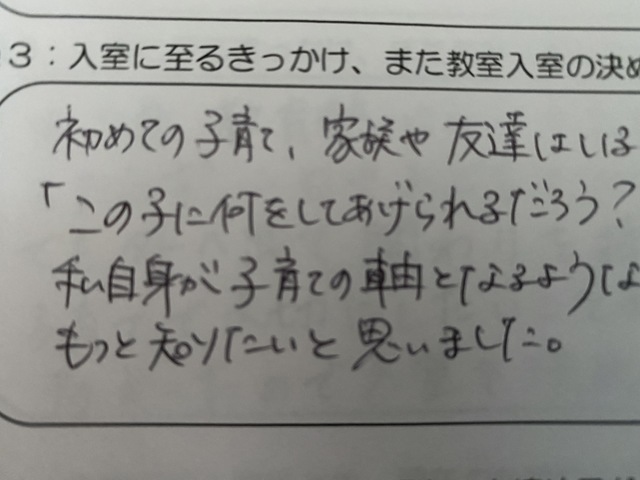 3：入室に至るきっかけ、また教室入室の決め
初めての子育て、家族や友達はいる
「この子に何をしてあげられるだろう？
私自身が子育ての軸となるような
もっと知りたいと思いました。